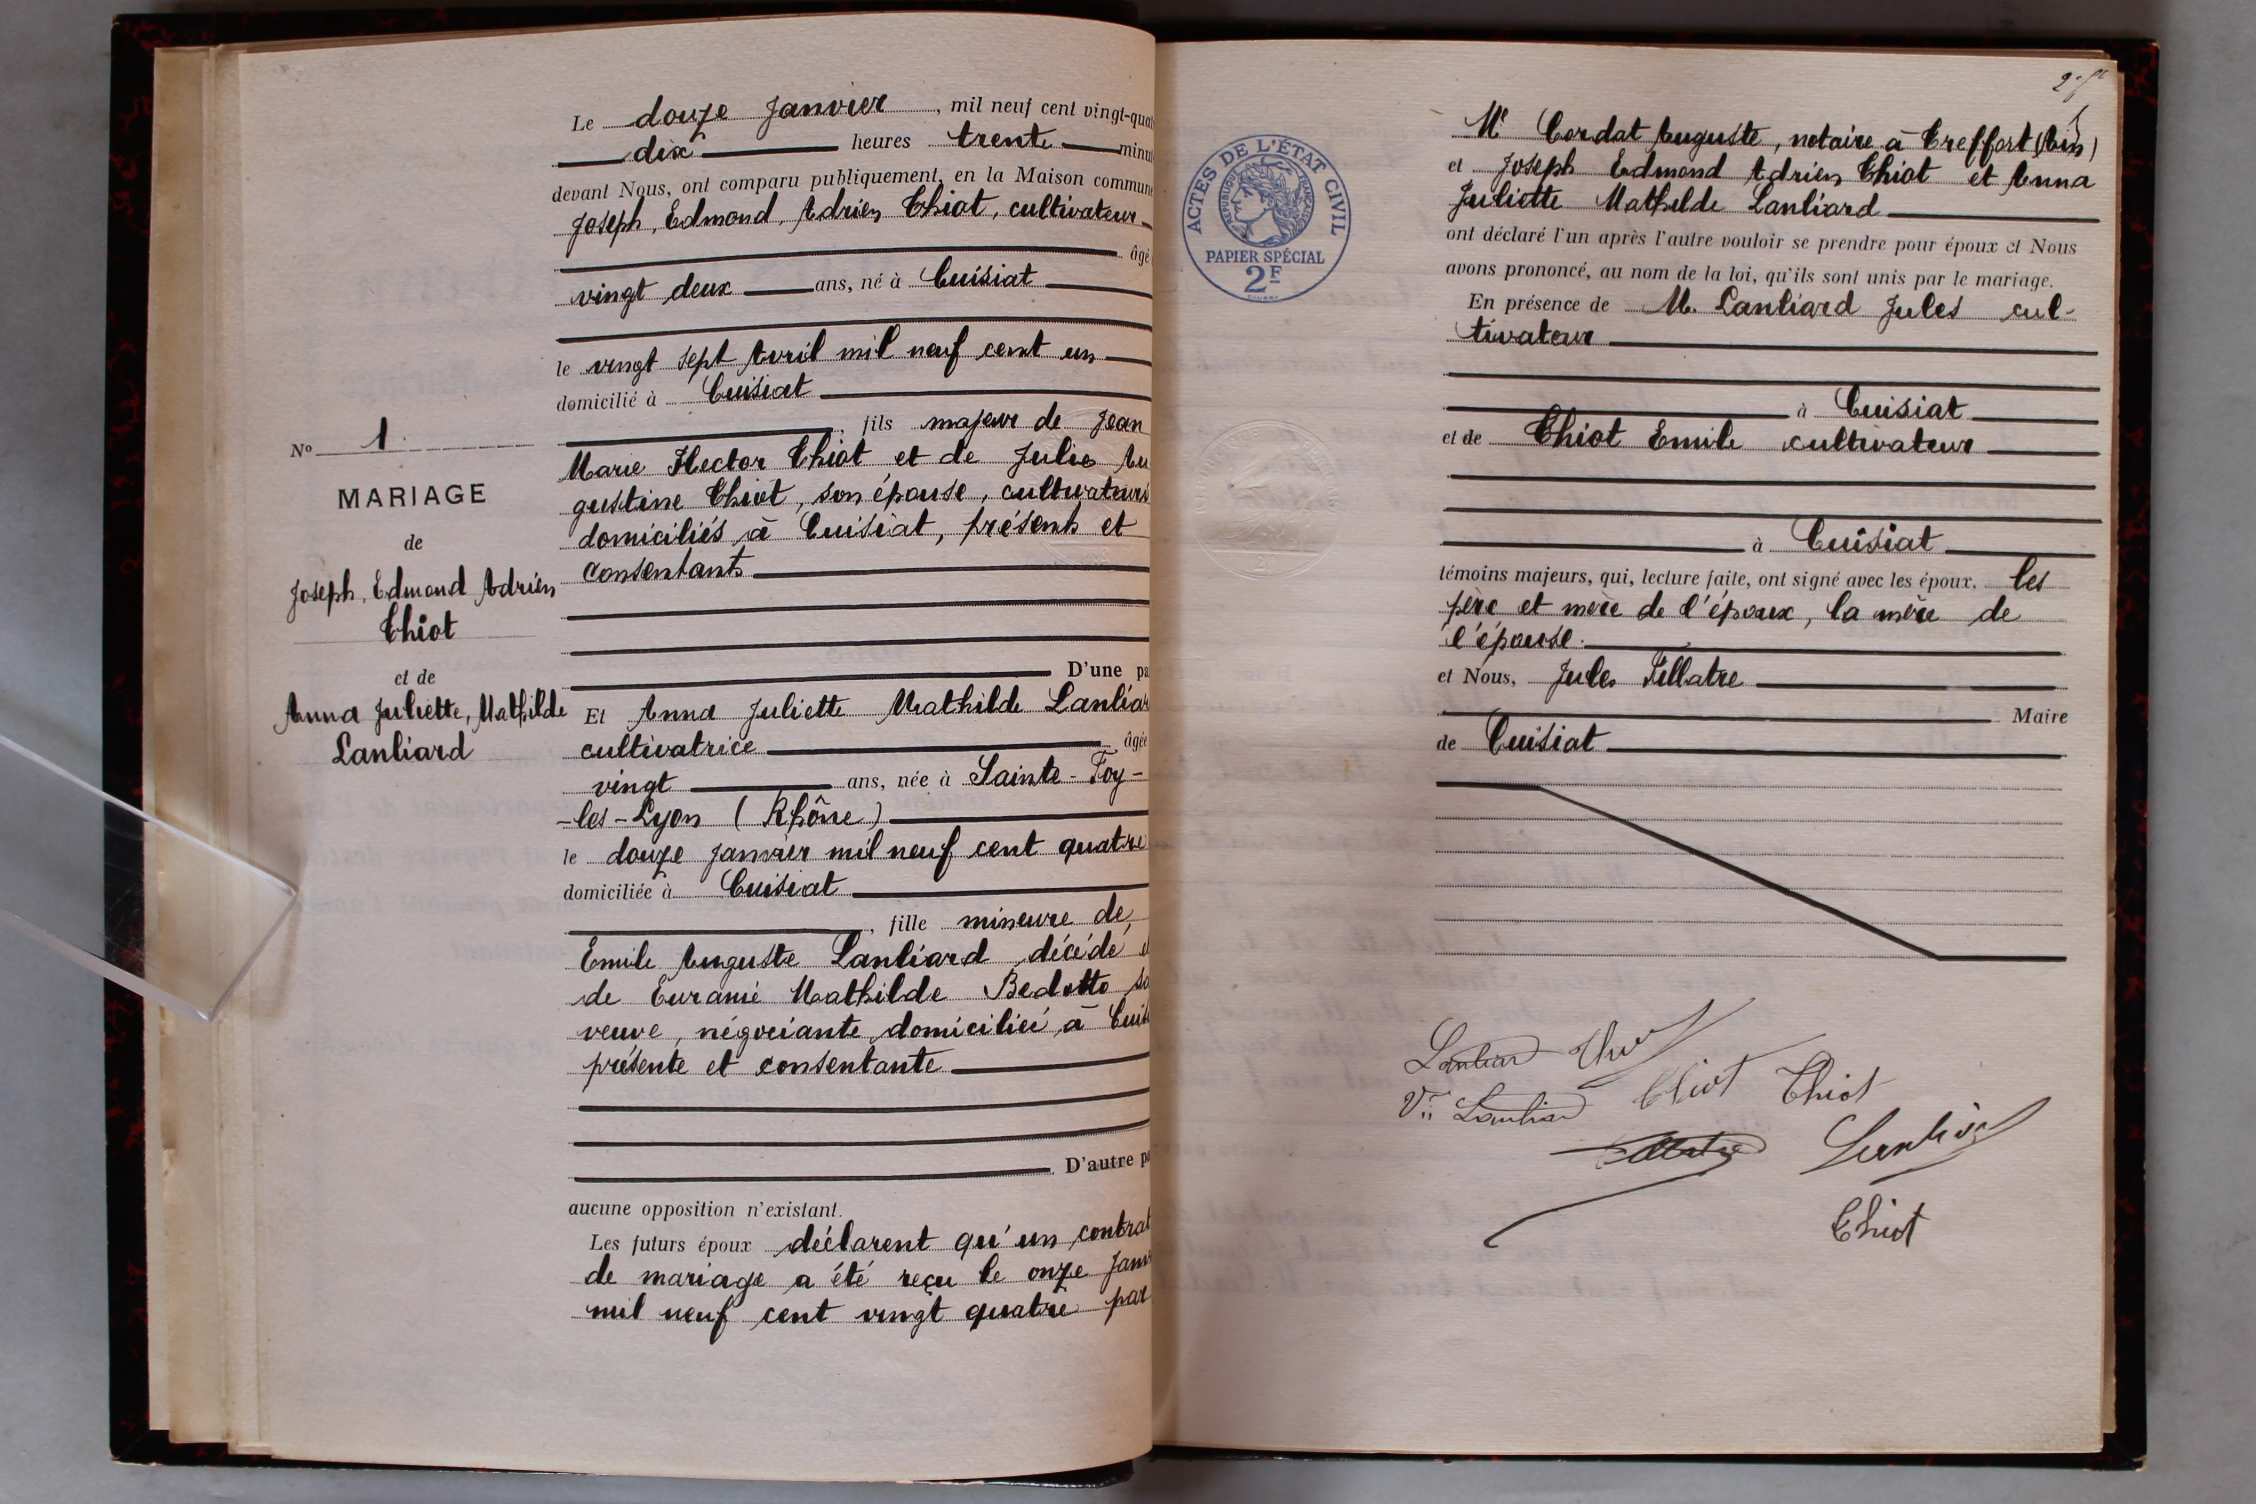 N° 1
MARIAGE
de
Joseph, Edmond Adrien
Thiot
et de
Anna Juliette, Mathilde
Lanliard
Le douze Janvier, mil neuf cent vingt-quat
dix heures trente minu
devant Nous, ont comparu publiquement, en la Maison commune
Joseph, Edmond, Adrien Thiot, cultivateur
âgé
vingt deux ans, né à Cuisiat
le vingt sept Avril mil neuf cent un
domicilié à Cuisiat
, fils majeur de Jean
Marie Hector Thiot et de Julie Au
gustine Thiot, son épouse, cultivateurs
domiciliés à Cuisiat, présents et
consentants
D'une pa
Et Anna Juliette Mathilde Lanliar
cultivatrice âgée
vingt ans, née à Sainte-Foy-
-les-Lyon (Rhône)
le douze Janvier mil neuf cent quatre
domiciliée à Cuisiat
, fille mineure de
Emile Auguste Lanliard décédé e
de Euranie Mathilde Bedotto sa
veuve, négociante domiciliée à Cuis
présente et consentante
D'autre pa
aucune opposition n'existant.
Les futurs époux déclarent qu'un contrat
de mariage a été reçu le onze Janv
mil neuf cent vingt quatre par
ACTES DE L'ÉTAT CIVIL
RÉPUBLIQUE FRANÇAISE
PAPIER SPÉCIAL
2F
Me Cordat Auguste, notaire à Treffort (Ain)
et Joseph Edmond Adrien Thiot et Anna
Juliette Mathilde Lanliard
ont déclaré l'un après l'autre vouloir se prendre pour époux et Nous
avons prononcé, au nom de la loi, qu'ils sont unis par le mariage.
En présence de M. Lanliard Jules cul-
tivateur
à Cuisiat
et de Thiot Emile cultivateur
à Cuisiat
témoins majeurs, qui, lecture faite, ont signé avec les époux. les
père et mère de l'époux, la mère de
l'épouse.
et Nous, Jules Pillatre
Maire
de Cuisiat
Lanliard Thiot
Vve Lanliard Thiot Thiot
Lanliard
Thiot